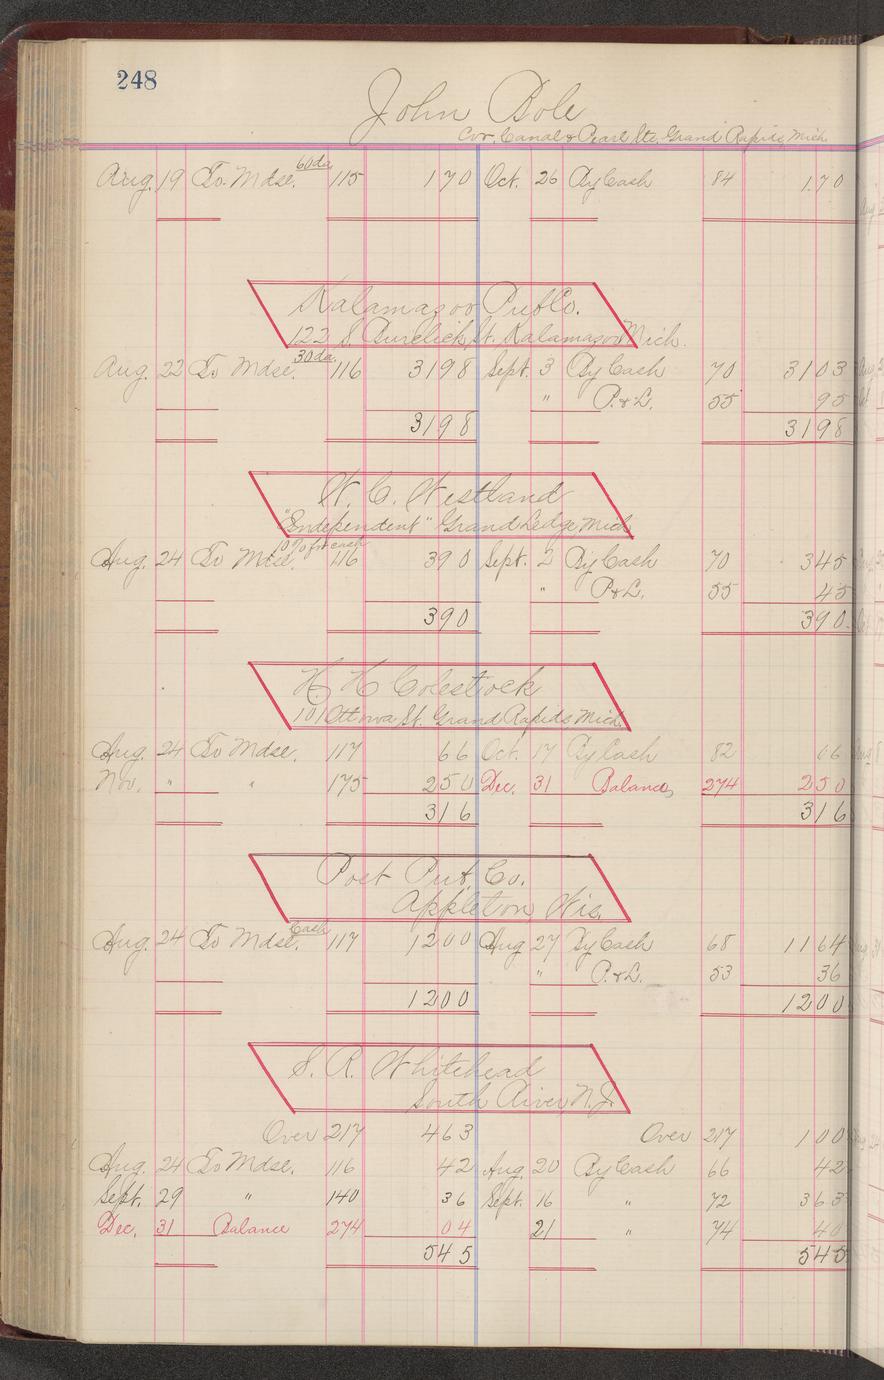 248
John Bole
Cor. Canal & Pearl Sts. Grand Rapids, Mich.
Aug. 19 To Mdse. 60da 115 170 Oct. 26 By Cash 84 170
Kalamazoo Pub Co.
122 S. St. Kalamazoo Mich.
Aug. 22 To Mdse. 30da. 116 3198 Sept. 3 By Cash 70 3103
" P.&L. 55 95
3198 3198
W. C. Westland
"Independent" Grand Ledge Mich.
Aug. 24 To Mdse. 10% for cash 116 390 Sept. 2 By Cash 70 345
" P.&L. 55 45
390 390
H. H. Colestock
101 Ottawa St. Grand Rapids, Mich.
Aug. 24 To Mdse. 117 66 Oct. 17 By Cash 82 66
Nov. " " 175 250 Dec. 31 Balance 274 250
316 316
Post Pub. Co.
Appleton Wis.
Aug. 24 To Mdse. Cash 117 1200 Aug 27 By Cash 68 1164
" P.&L. 53 36
1200 1200
S. R. Whitehead
South River N.J.
Over 217 463 Over 217 100
Aug. 24 To Mdse. 116 42 Aug. 20 By Cash 66 42
Sept. 29 " 140 36 Sept. 16 " 72 363
Dec. 31 Balance 274 04 21 " 74 40
545 545